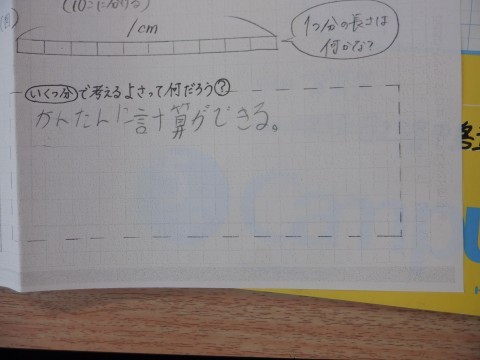 (10こに分ける)
1cm
1つ分の長さは
何かな?
いくつ分で考えるよさって何だろう?
かんたんに計算ができる。